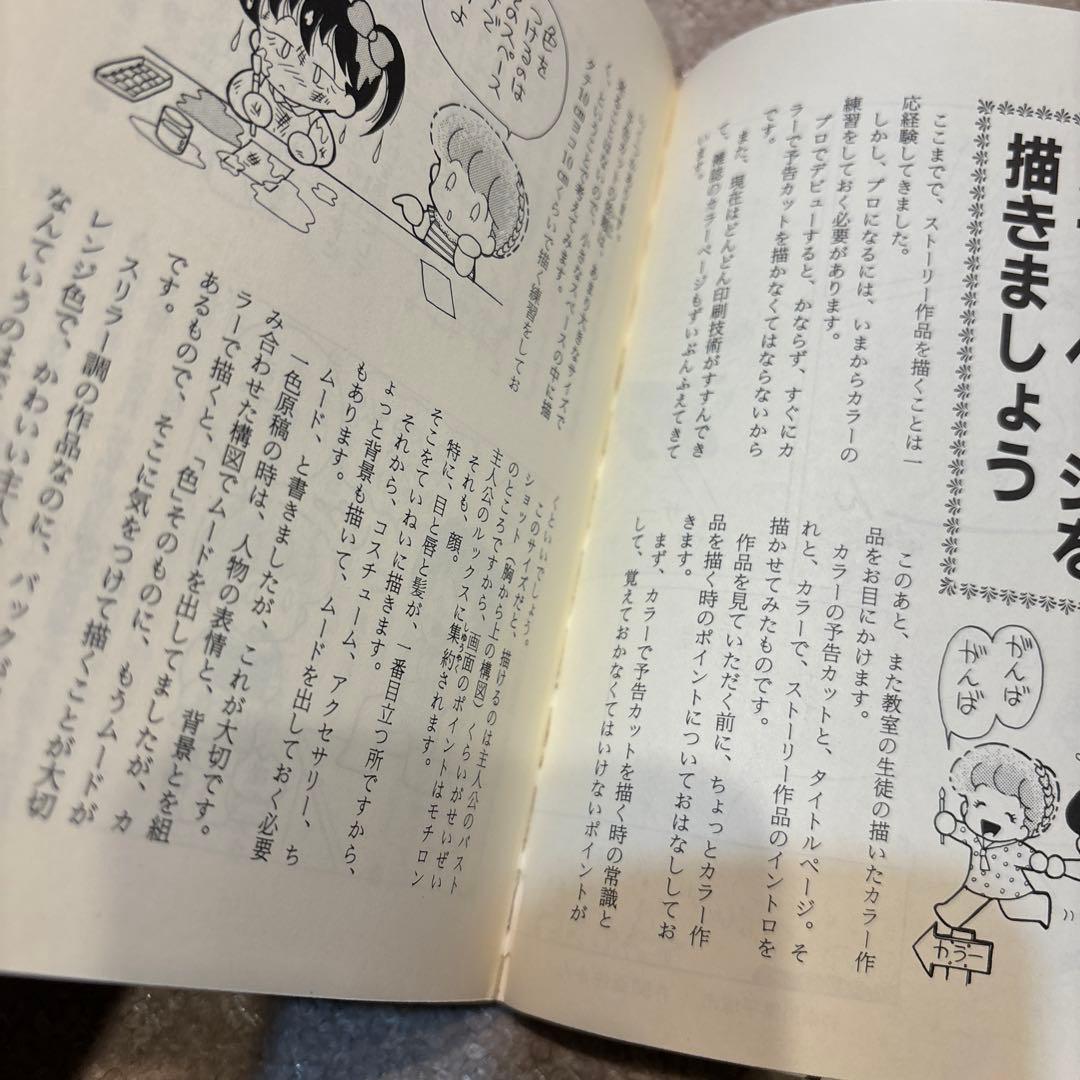 ジを
描きましょう
ここまでで、ストーリー作品を描くことは一
応経験してきました。
しかし、プロになるには、いまからカラーの
練習をしておく必要があります。
プロでデビューすると、かならず、すぐにカ
ラーで予告カットを描かなくてはならないから
です。
また、現在はどんどん印刷技術がすすんでき
て、雑誌のカラーページもずいぶんふえてきて
います。
このあと、また教室の生徒の描いたカラー作
品をお目にかけます。
カラーの予告カットと、タイトルページ。そ
れと、カラーで、ストーリー作品のイントロを
描かせてみたものです。
作品を見ていただく前に、ちょっとカラー作
品を描く時のポイントについておはなししてお
きます。
まず、カラーで予告カットを描く時の常識と
して、覚えておかなくてはいけないポイントが
がんば
がんば
カラー
色を
つけるのは
スペース
よ
タテ10cmヨコ10cmくらいで描く練習をしてお
くといいでしょう。
このサイズだと、描けるのは主人公のバスト
ショット（胸から上の構図）くらいがせいぜい
のところですから、画面のポイントはモチロン
主人公のルックスに集約されます。
しゅうやく
それも、顔。
特に、目と唇と髪が、一番目立つ所ですから、
そこをていねいに描きます。
それから、コスチューム、アクセサリー、ち
ょっと背景も描いて、ムードを出しておく必要
もあります。
ムード、と書きましたが、これが大切です。
一色原稿の時は、人物の表情と、背景とを組
み合わせた構図でムードを出してましたが、カ
ラーで描くと、「色」そのものに、もうムードが
あるもので、そこに気をつけて描くことが大切
です。
スリラー調の作品なのに、バック
レンジ色で、かわいい主人
なんていうのは